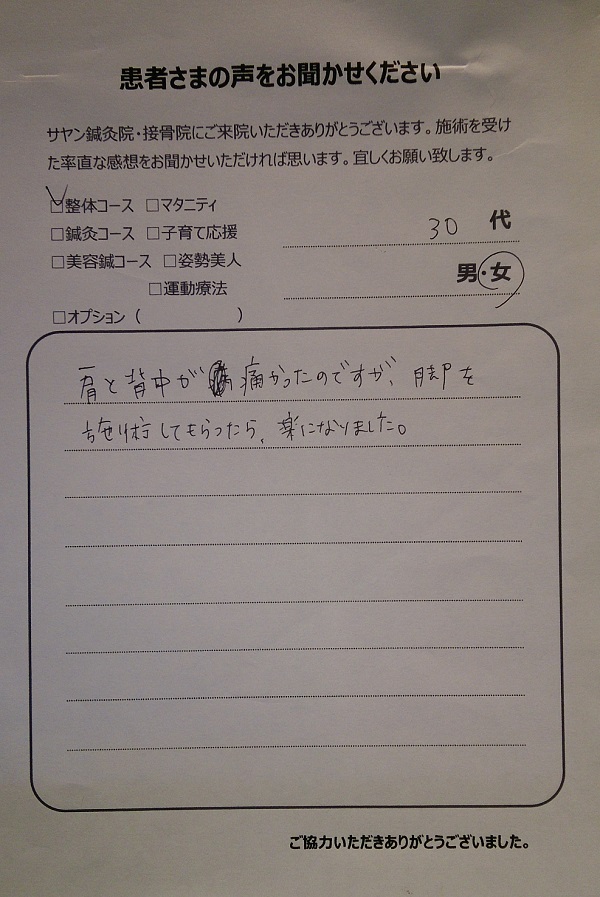 患者さまの声をお聞かせください
サヤン鍼灸院・接骨院にご来院いただきありがとうございます。施術を受け
た率直な感想をお聞かせいただければ思います。宜しくお願い致します。
□整体コース □マタニティ
□鍼灸コース □子育て応援
30 代
□美容鍼コース □姿勢美人
男・女
□運動療法
□オプション ( )
肩と背中が痛かったのですが、脚を
施術してもらったら、楽になりました。
ご協力いただきありがとうございました。